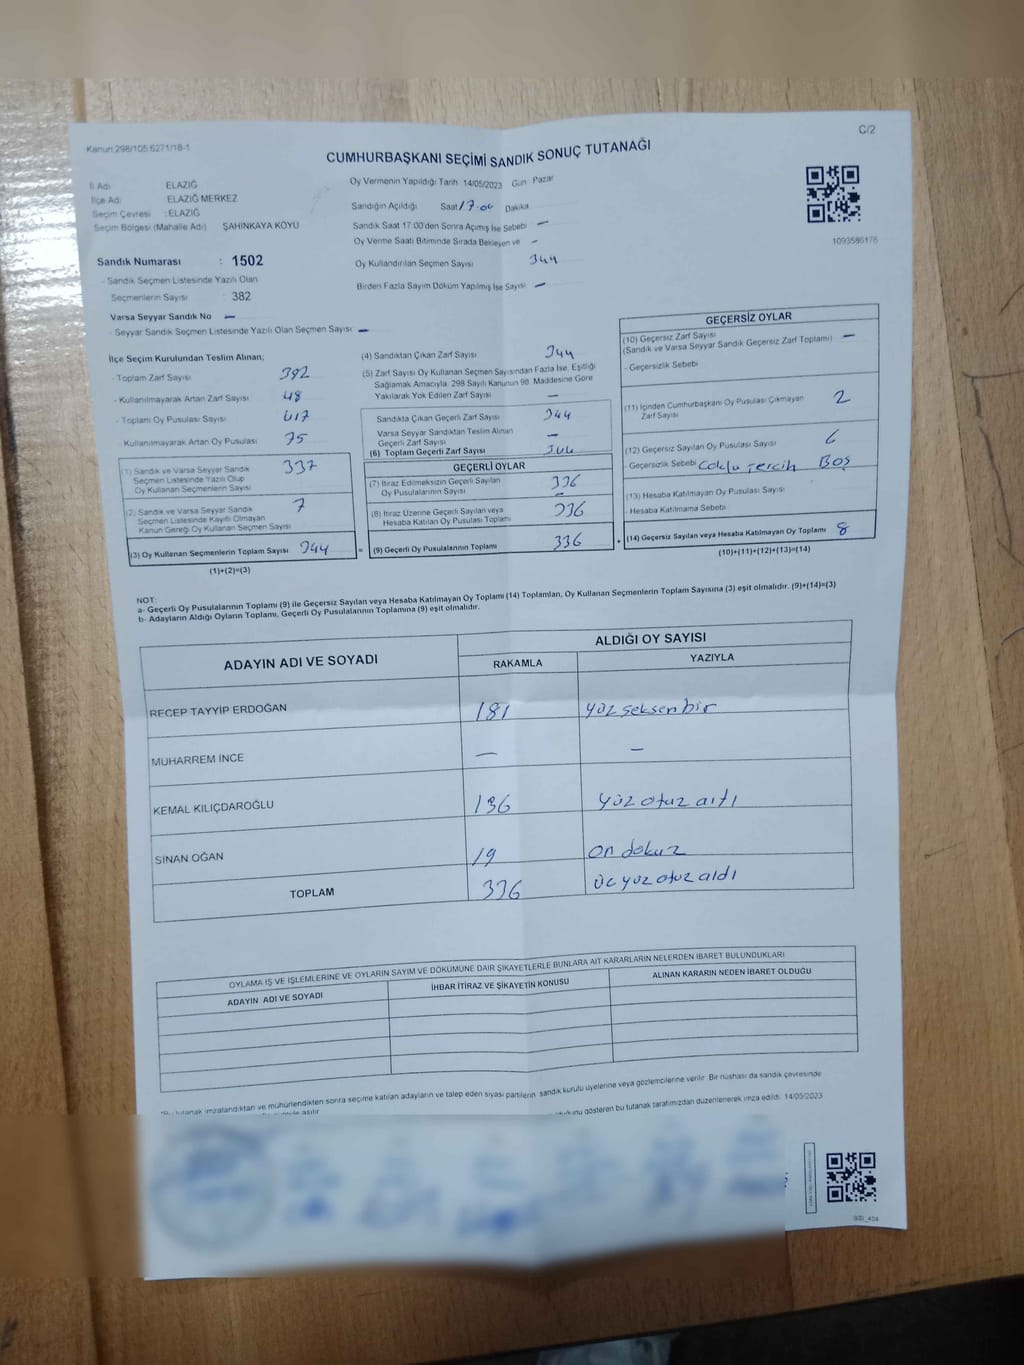 Kanun:298/105 6271/18-1
C/2
CUMHURBAŞKANI SEÇİMİ SANDIK SONUÇ TUTANAĞI
İl Adı ELAZIĞ
İlçe Adı ELAZIĞ MERKEZ
Seçim Çevresi : ELAZIĞ
Seçim Bölgesi (Mahalle Adı) ŞAHİNKAYA KÖYÜ
Sandık Numarası : 1502
- Sandık Seçmen Listesinde Yazılı Olan
Seçmenlerin Sayısı : 382
Varsa Seyyar Sandık No —
- Seyyar Sandık Seçmen Listesinde Yazılı Olan Seçmen Sayısı : —
Oy Vermenin Yapıldığı Tarih 14/05/2023 Gün Pazar
Sandığın Açıldığı Saat 17.00 Dakika
Sandık Saat 17:00'den Sonra Açılmış İse Sebebi —
Oy Verme Saati Bitiminde Sırada Bekleyen ve —
Oy Kullandırılan Seçmen Sayısı 344
Birden Fazla Sayım Döküm Yapılmış İse Sayısı —
1093586176
İlçe Seçim Kurulundan Teslim Alınan;
- Toplam Zarf Sayısı 392
- Kullanılmayarak Artan Zarf Sayısı 48
- Toplam Oy Pusulası Sayısı 417
- Kullanılmayarak Artan Oy Pusulası 75
(1) Sandık ve Varsa Seyyar Sandık
Seçmen Listesinde Yazılı Olup
Oy Kullanan Seçmenlerin Sayısı 337
(2) Sandık ve Varsa Seyyar Sandık
Seçmen Listesinde Kayıtlı Olmayan
Kanun Gereği Oy Kullanan Seçmen Sayısı 7
(3) Oy Kullanan Seçmenlerin Toplam Sayısı 344
(1)+(2)=(3)
(4) Sandıktan Çıkan Zarf Sayısı 344
(5) Zarf Sayısı Oy Kullanan Seçmen Sayısından Fazla İse, Eşitliği
Sağlamak Amacıyla; 298 Sayılı Kanunun 98. Maddesine Göre
Yakılarak Yok Edilen Zarf Sayısı —
Sandıkta Çıkan Geçerli Zarf Sayısı 344
Varsa Seyyar Sandıktan Teslim Alınan
Geçerli Zarf Sayısı —
(6) Toplam Geçerli Zarf Sayısı 344
GEÇERLİ OYLAR
(7) İtiraz Edilmeksizin Geçerli Sayılan
Oy Pusulalarının Sayısı 336
(8) İtiraz Üzerine Geçerli Sayılan veya
Hesaba Katılan Oy Pusulası Toplamı — 336
= (9) Geçerli Oy Pusulalarının Toplamı 336 +
GEÇERSİZ OYLAR
(10) Geçersiz Zarf Sayısı
(Sandık ve Varsa Seyyar Sandık Geçersiz Zarf Toplamı) —
- Geçersizlik Sebebi
(11) İçinden Cumhurbaşkanı Oy Pusulası Çıkmayan
Zarf Sayısı 2
(12) Geçersiz Sayılan Oy Pusulası Sayısı 6
- Geçersizlik Sebebi Çoklu Tercih Boş
(13) Hesaba Katılmayan Oy Pusulası Sayısı
- Hesaba Katılmama Sebebi
(14) Geçersiz Sayılan veya Hesaba Katılmayan Oy Toplamı 8
(10)+(11)+(12)+(13)=(14)
NOT:
a- Geçerli Oy Pusulalarının Toplamı (9) ile Geçersiz Sayılan veya Hesaba Katılmayan Oy Toplamı (14) Toplamları, Oy Kullanan Seçmenlerin Toplam Sayısına (3) eşit olmalıdır. (9)+(14)=(3)
b- Adayların Aldığı Oyların Toplamı, Geçerli Oy Pusulalarının Toplamına (9) eşit olmalıdır.
ADAYIN ADI VE SOYADI
ALDIĞI OY SAYISI
RAKAMLA YAZIYLA
RECEP TAYYİP ERDOĞAN 181 yüz seksen bir
MUHARREM İNCE — —
KEMAL KILIÇDAROĞLU 136 yüz otuz altı
SİNAN OĞAN 19 on dokuz
TOPLAM 336 üç yüz otuz aldı
OYLAMA İŞ VE İŞLEMLERİNE VE OYLARIN SAYIM VE DÖKÜMÜNE DAİR ŞİKAYETLERLE BUNLARA AİT KARARLARIN NELERDEN İBARET BULUNDUKLARI
ADAYIN ADI VE SOYADI İHBAR İTİRAZ VE ŞİKAYETİN KONUSU ALINAN KARARIN NEDEN İBARET OLDUĞU
*Bu tutanak imzalandıktan ve mühürlendikten sonra seçime katılan adayların ve talep eden siyasi partilerin sandık kurulu üyelerine veya gözlemcilerine verilir. Bir nüshası da sandık çevresinde
gösteren bu tutanak tarafımızdan düzenlenerek imza edildi. 14/05/2023